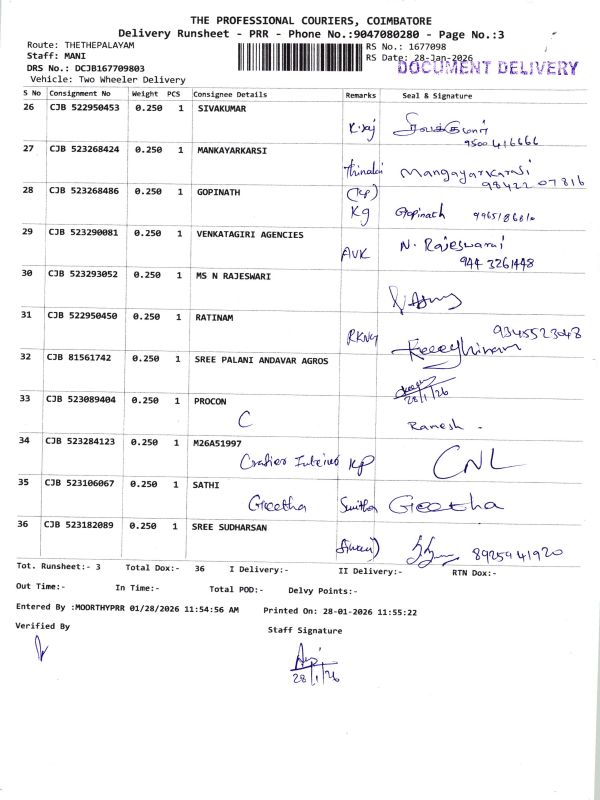 THE PROFESSIONAL COURIERS, COIMBATORE
Delivery Runsheet - PRR - Phone No.:9047080280 - Page No.:3
Route: THETHEPALAYAM
RS No.: 1677098
Staff: MANI
RS Date: 28-Jan-2026
DOCUMENT DELIVERY
DRS No.: DCJB167709803
Vehicle: Two Wheeler Delivery
S No Consignment No Weight PCS Consignee Details Remarks Seal & Signature
26 CJB 522950453 0.250 1 SIVAKUMAR
9500416666
27 CJB 523268424 0.250 1 MANKAYARKARSI
Mangayarkarasi
98422 07816
28 CJB 523268486 0.250 1 GOPINATH
Kg Gopinath
29 CJB 523290081 0.250 1 VENKATAGIRI AGENCIES
AVK N. Rajeswarai
944 3261448
30 CJB 523293052 0.250 1 MS N RAJESWARI
31 CJB 522950450 0.250 1 RATINAM
9345523048
32 CJB 81561742 0.250 1 SREE PALANI ANDAVAR AGROS
28/1/26
33 CJB 523089404 0.250 1 PROCON
C Ramesh
34 CJB 523284123 0.250 1 M26A51997
KP CNL
35 CJB 523106067 0.250 1 SATHI
Geetha Geetha
36 CJB 523182089 0.250 1 SREE SUDHARSAN
8925941920
Tot. Runsheet:- 3 Total Dox:- 36 I Delivery:- II Delivery:- RTN Dox:-
Out Time:- In Time:- Total POD:- Delvy Points:-
Entered By :MOORTHYPRR 01/28/2026 11:54:56 AM Printed On: 28-01-2026 11:55:22
Verified By Staff Signature
28/1/26